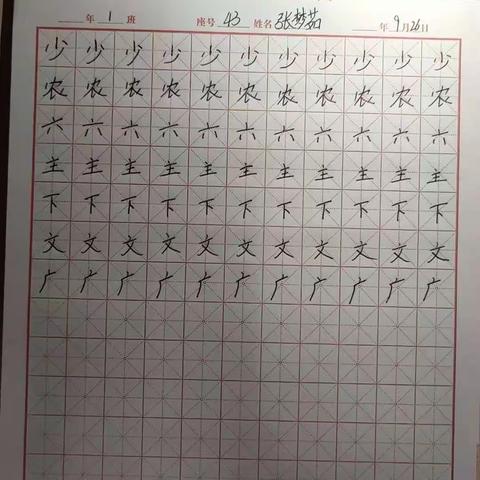 年 1 班 座号 43 姓名 张梦茹 年 9月26日
少 少 少 少 少 少 少 少 少 少 少
农 农 农 农 农 农 农 农 农 农 农
六 六 六 六 六 六 六 六 六 六 六
主 主 主 主 主 主 主 主 主 主 主
下 下 下 下 下 下 下 下 下 下 下
文 文 文 文 文 文 文 文 文 文 文
广 广 广 广 广 广 广 广 广 广 广